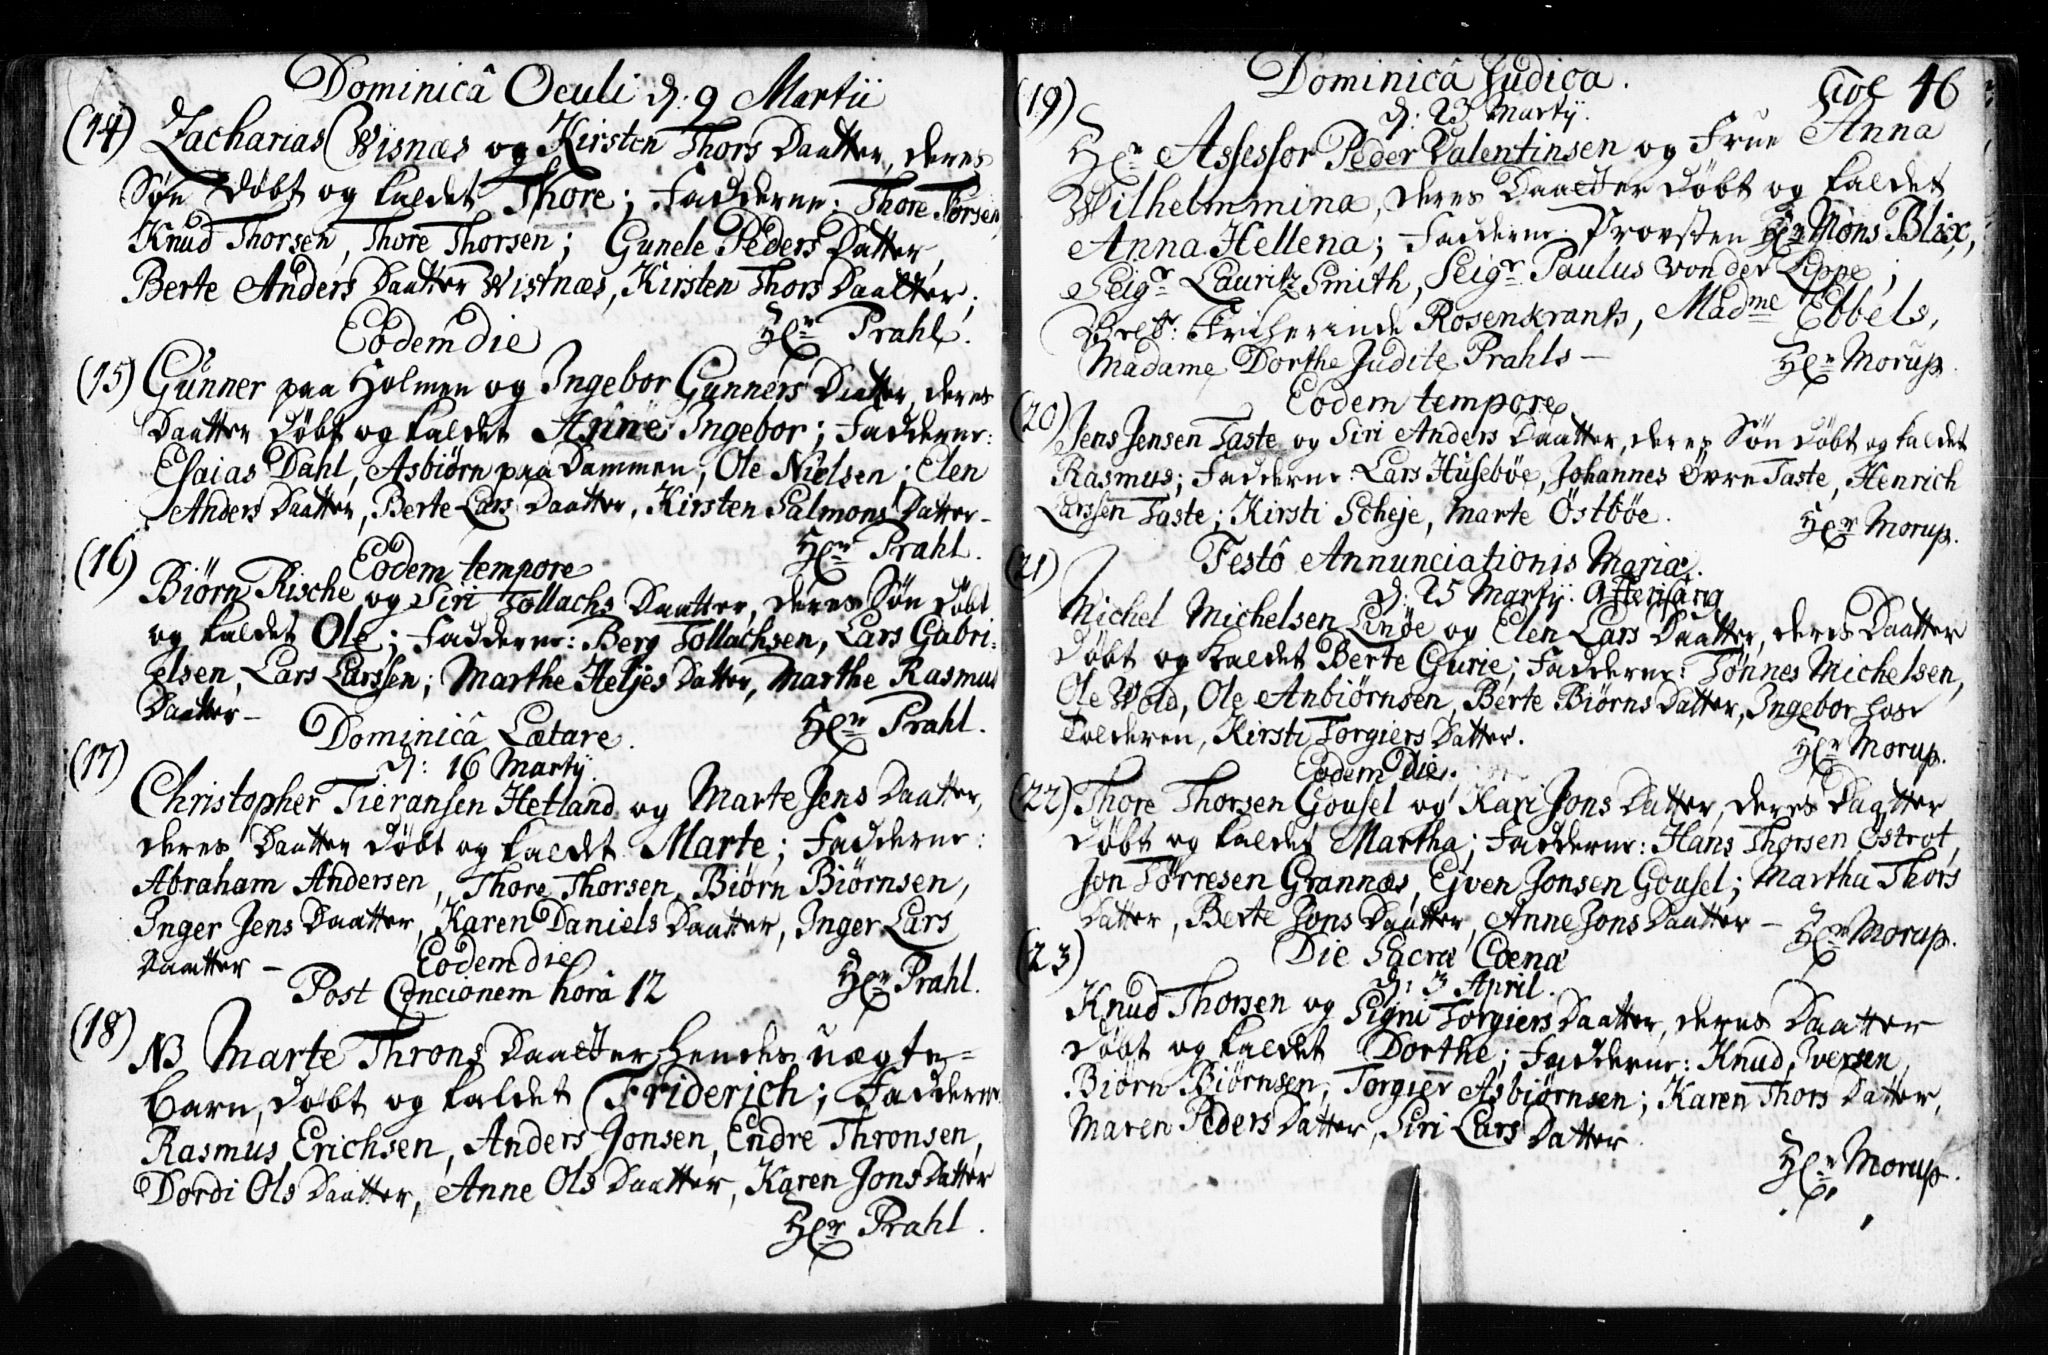 Dominicâ Oculi d: 9 Martii
(14) Zacharias Wisnæs og Kirsten Thors Daatter, deres
Søn døbt og kaldet Thore; Fadderne: Thore Torsen,
Knud Thorsen, Thore Thorsen; Gunele Peders Datter,
Berte Anders Daatter Wistnæs, Kirsten Thors Daatter;
Eodem die Hr Prahl.
(15) Gunner paa Holmen og Ingebor Gunners Datter, deres
Daatter døbt og kaldet Anne Ingebor; Fadderne:
Esaias Dahl, Asbiørn paa Dammen, Ole Nielsen; Elen
Anders Daatter, Berte Lars Daatter, Kirsten Salmons Datter –
Hr Prahl.
(16) Eodem tempore
Biørn Rische og Siri Tollachs Daatter, deres Søn døbt
og kaldet Ole; Fadderne: Berg Tollachsen, Lars Gabri-
elsen, Lars Larssen; Marthe Heljes Datter, Marthe Rasmus
Daatter – Hr Prahl.
Dominicâ Lætare.
(17) d: 16 Martij.
Christopher Tieransen Hetland og Marte Jens Daatter,
deres Daatter døbt og kaldet Marte; Fadderne:
Abraham Andersen, Thore Thorsen, Biørn Biørnsen,
Inger Jens Daatter, Karen Daniels Daatter, Inger Lars
Daatter – Hr Prahl.
Eodem die
Post Concionem hora 12
(18) NB Marte Throns Daatter hendes uægte-
barn, døbt og kaldet Friderich; Fadderne
Rasmus Erichsen, Anders Jonsen, Endre Thronsen,
Dordi Ols Daatter, Anne Ols Daatter, Karen Jons Datter
Hr Prahl.
Dominicâ Judica. Fol 46
(19) d: 23 Martij.
Hr Assessor Peder Valentinsen og Frue Anna
Wilhelmmina, deres Daatter døbt og kaldet
Anna Hellena; Fadderne: Provsten Hr Mons Blix,
Seigr Lauritz Smith, Seigr Paulus von der Lippe;
Friherinde Rosenkrants, Madme Ebbels,
Madame Dorthe Judite Prahls – Hr Morup.
(20) Eodem tempore
Jens Jensen Taste og Siri Anders Daatter, deres Søn døbt og kaldet
Rasmus; Fadderne: Lars Husebøe, Johannes Øvre Taste, Henrich
Larssen Taste; Kirsti Scheje, Marte Östbøe. Hr Morup.
(21) Festô Annunciationis Mariæ.
d: 25 Martij. Aftersang
Michel Michelsen Linøe og Elen Lars Daatter, deres Daatter
døbt og kaldet Berte Gurie; Fadderne: Tønnes Michelsen,
Ole Wold, Ole Anbiørnsen, Berte Biørns Datter, Ingebor hos
Tolderen, Kirsti Torgiers Datter. Hr Morup.
Eodem Die.
(22) Thore Thorsen Gousel og Kari Jons Datter, deres Daatter
døbt og kaldet Martha; Fadderne: Hans Thorsen Östrot,
Jon Törresen Grannæs, Ejven Jonsen Gousel; Martha Thors
Datter, Berte Jons Daatter, Anne Jons Daatter – Hr Morup.
(23) Die Sacræ Cœnæ
d: 3 April.
Knud Thorsen og Signi Torgiers Daatter, deres Daatter
døbt og kaldet Dorthe; Fadderne: Knud Iversen,
Biørn Biørnsen, Torgier Asbiørnsen; Karen Thors Datter,
Maren Peders Datter, Siri Lars Datter
Hr Morup.